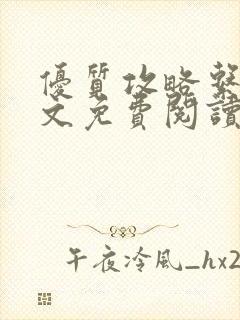 優質攻略系
文免費閱讀
午夜冷風_hx2